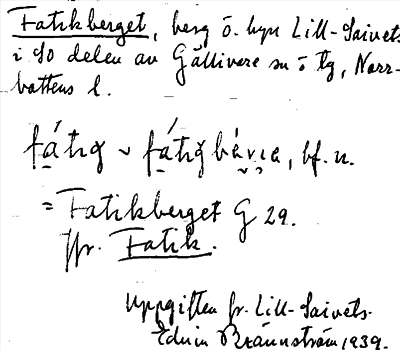 Fatikberget, berg ö. byn Lill-Saivets
i so delen av Gällivare sn o tg, Norr-
bottens l.
fátıg ~ fátıg bærıe, bf. n.
= Fatikberget G 29.
Jfr. Fatik.
Uppgiften fr. Lill-Saivets.
Edvin Brännström 1939.